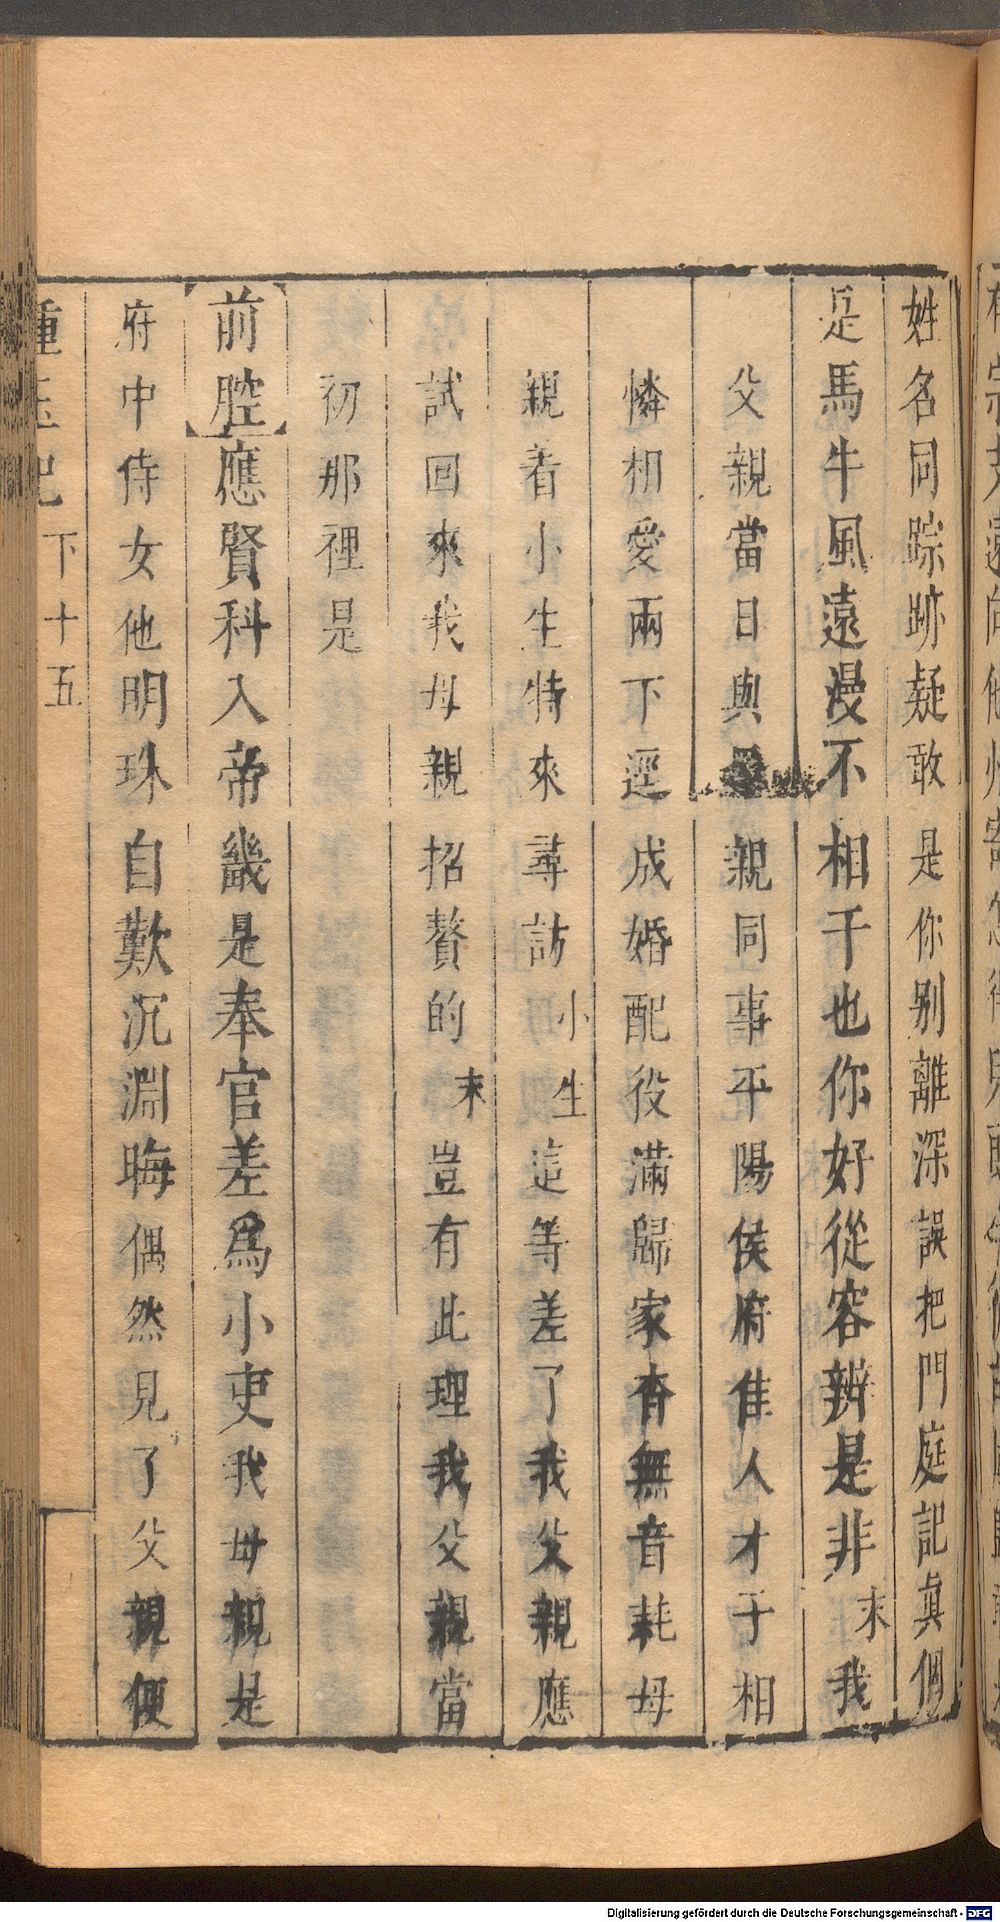 姓名同踪跡疑敢是你別離深誤把門庭記真個
是馬牛風遠漫不相干也你好從容辨是非末我
父親當日與親同事平陽侯府佳人才子相
憐相愛兩下逕成婚配役滿歸家杳無音耗母
親着小生特來尋訪小生這等差了我父親應
試回來我母親招贅的末豈有此理我父親當
初那裡是
前腔應賢科入帝畿是奉官差爲小吏我母親是
府中侍女他明珠自歎沉淵晦偶然見了父親便
種玉記 下 十五
Digitalisierung gefördert durch die Deutsche Forschungsgemeinschaft - DFG